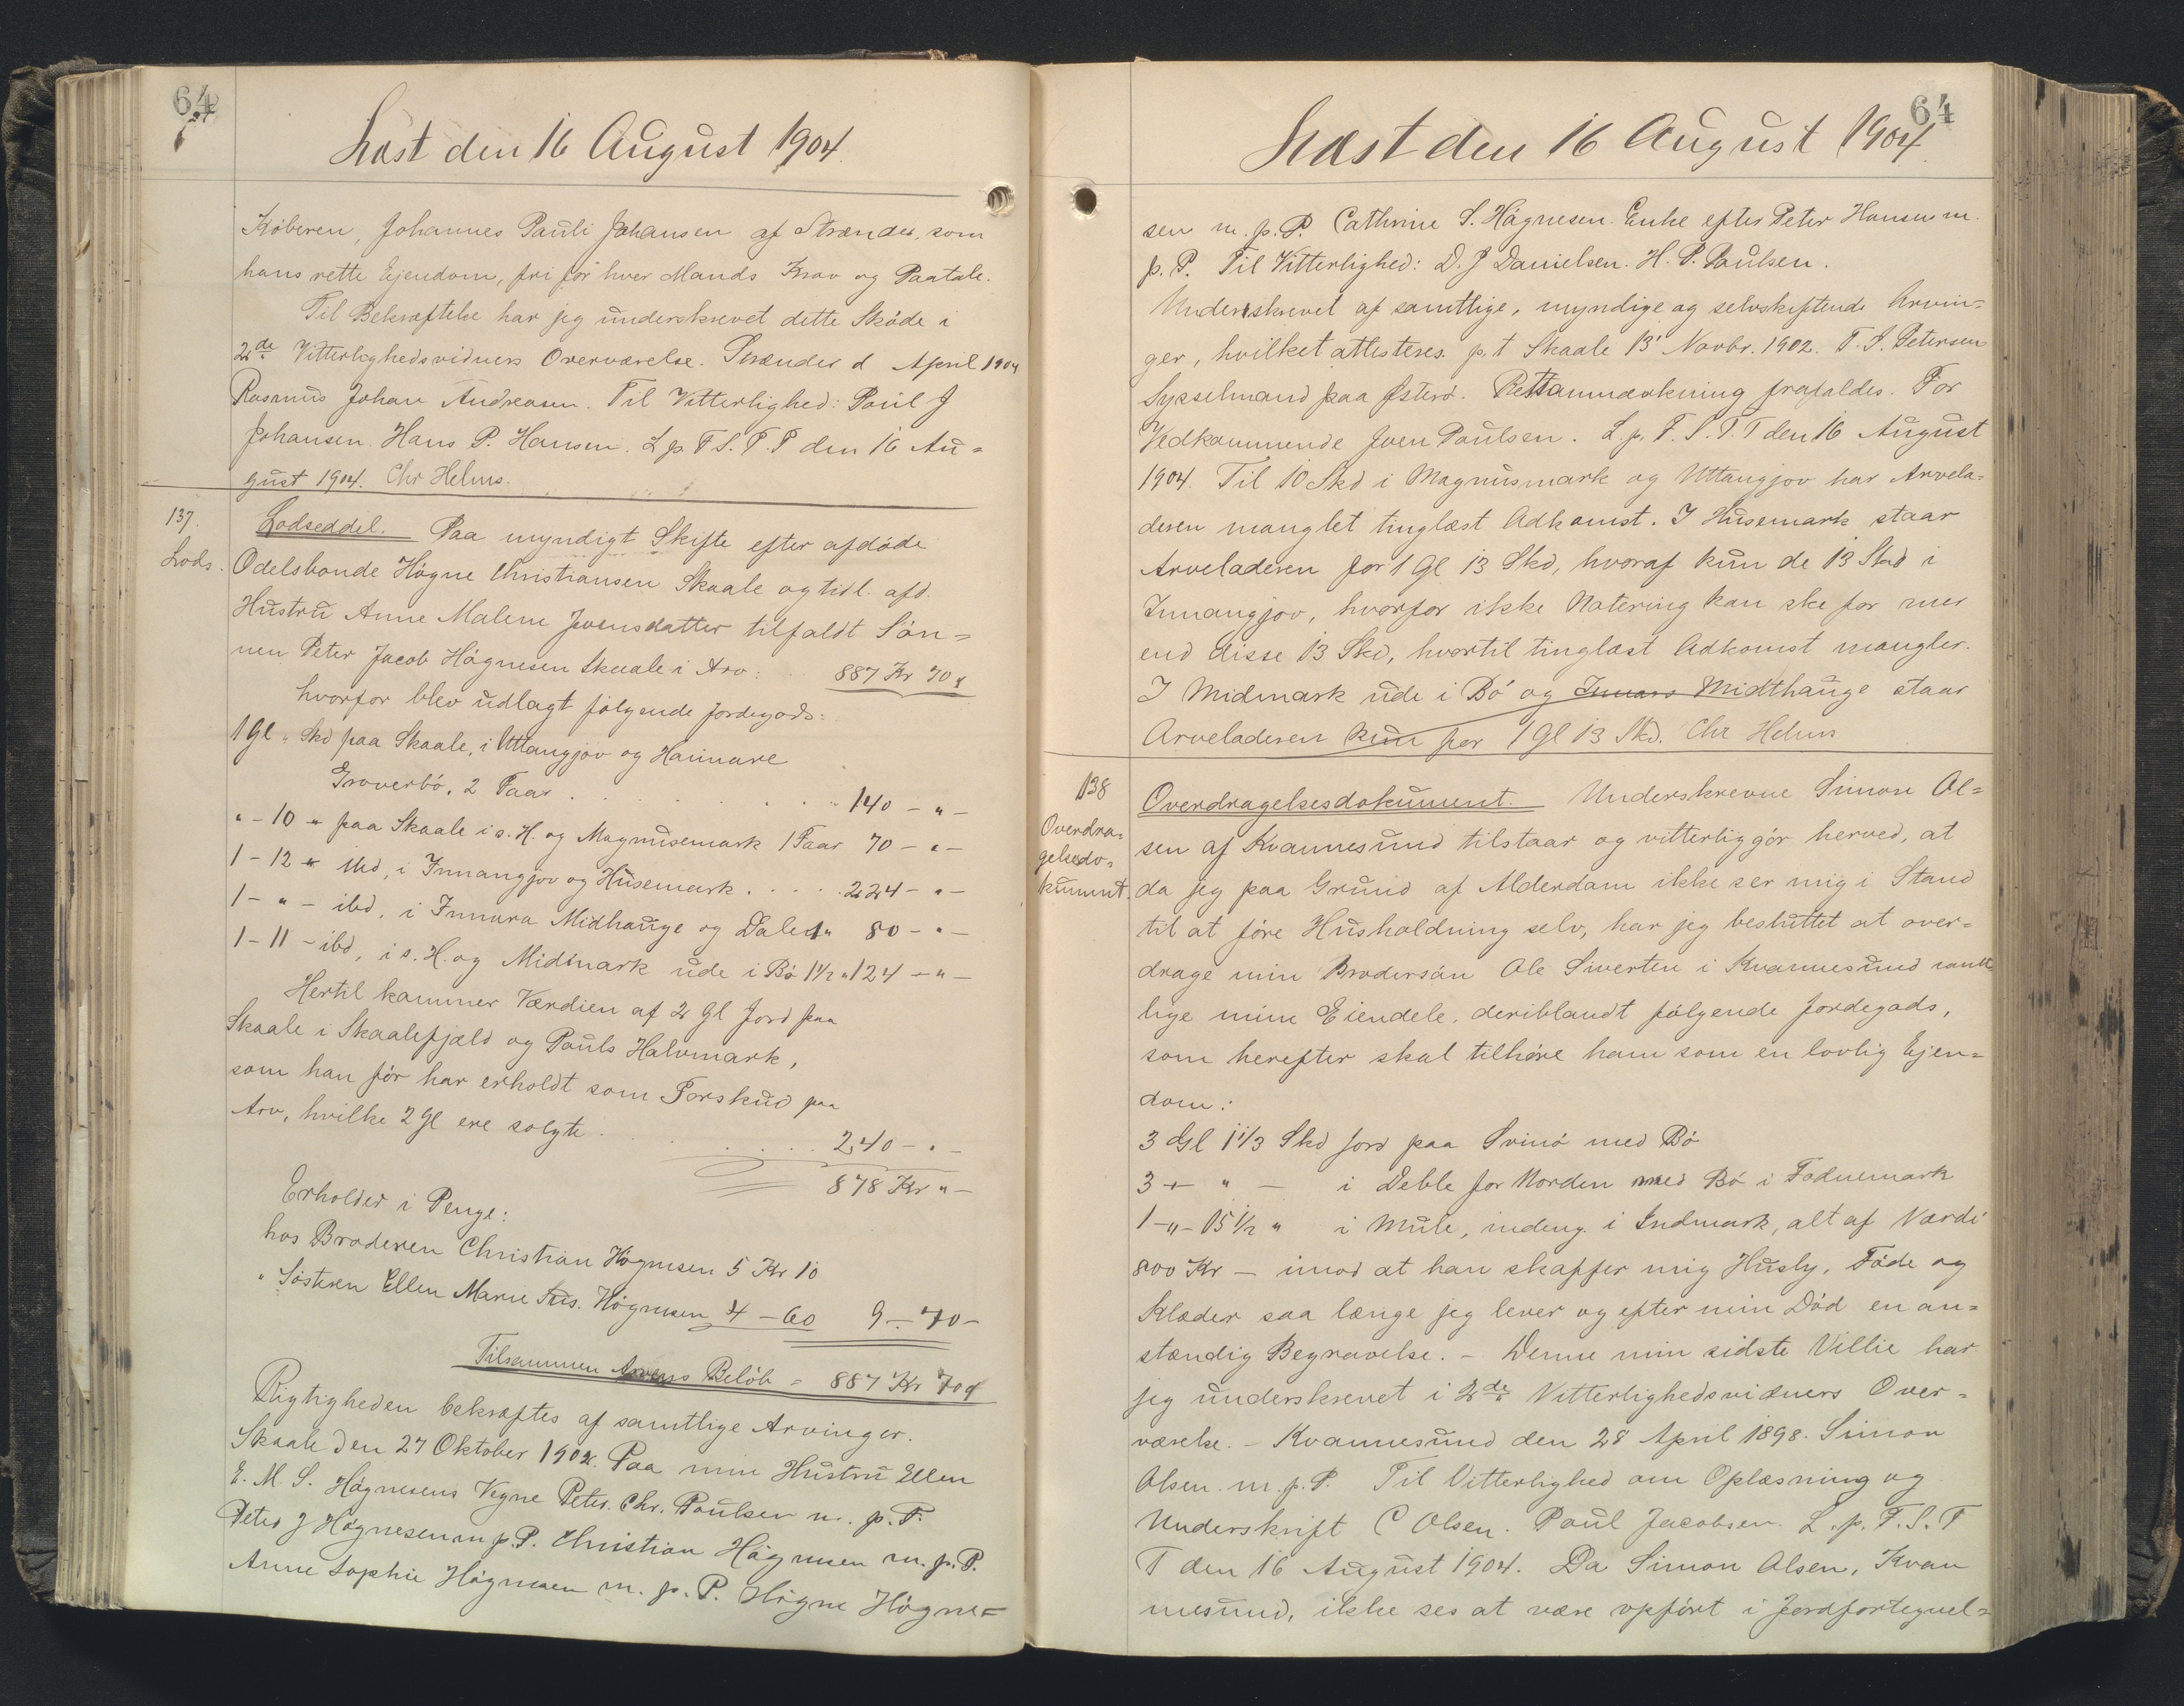 64
Læst den 16 August 1904.
Köberen, Johannes Pauli Johansen af Strænder, som
hans rette Ejendom, fri for hver Mands Krav og Paatale.
Til Bekræftelse har jeg underskrevet dette Sköde i
2de Vitterlighedsvidners Overværelse. Strænder d April 1904
Rasmus Johan Andreasen. Til Vitterlighed: Poul J
Johansen. Hans P. Hansen. L. p. F. S. T. T den 16 Au=
gust 1904. Chr Helms.
137.
Lods.
Lodseddel. Paa myndigt Skifte efter afdöde
Odelsbonde Högne Christiansen Skaale og tidl. afd.
Hustru Anne Malene Joensdatter tilfaldt Sön=
nen Peter Jacob Högnesen Skaale i Arv: 887 Kr 70
hvorfor blev udlagt fölgende Jordegods:
1 Gl " Skd paa Skaale, i Uttangjov og Hannare
Groverbö, 2 Faar . . . . 140 - " -
" - 10 " paa Skaale i s. H. og Magnusemark 1 Faar 70 - " -
1 - 12 " ibd, i Innangjov og Húsemark . . . . . 224 - " -
1 - " - ibd, i Innara Midhauge og Dale 1 " 80 - " -
1 - 11 - ibd, i s. H. og Midmark ude i Bö 1½ " 124 - " -
Hertil kommer Værdien af 2 Gl Jord paa
Skaale i Skaalefjæld og Pauls Halvmark,
som han för har erholdt som Forskud paa
Arv, hvilke 2 Gl ere solgte . . . . . 240 - " -
878 Kr " -
Erholder i Penge:
hos Broderen Christian Högnesen 5 Kr 10
" Söstren Ellen Marie Sus. Högnesen 4 - 60 9 - 70 -
Tilsammen Arvens Belöb = 887 Kr 70
Rigtigheden bekræftes af samtlige Arvinger.
Skaale den 27 Oktober 1902. Paa min Hustru Ellen
E. M. S. Högnesens Vegne Peter Chr. Poulsen m. p. P.
Peter J Högnesen m p. P. Christian Högnesen m. p. P.
Anne Sophie Högnesen m. p. P. Högne Högne=
64
Læst den 16 August 1904.
sen m. p. P. Cathrine S. Högnesen. Enke efter Peter Hansen m.
p. P. Til Vitterlighed: D. J Danielsen. H. P. Poulsen.
Underskrevet af samtlige, myndige og selvskiftende Arvin=
ger, hvilket attesteres. p. t Skaale 13' Novbr. 1902. T. S. Petersen
Sysselmand paa Österö. Rettanmærkning frafaldes. For
Vedkommende Joen Poulsen. L. p. F. S. T. T den 16 August
1904. Til 10 Skd i Magnusmark og Uttangjov har Arvela=
deren manglet tinglæst Adkomst. I Húsemark staar
Arveladeren for 1 Gl 13 Skd, hvoraf kun de 13 Skd i
Innangjov, hvorfor ikke Notering kan ske for mer
end disse 13 Skd, hvortil tinglæst Adkomst mangler.
I Midmark ude i Bö og Innara Midthauge staar
Arveladeren kun for 1 Gl 13 Skd. Chr Helms
138
Overdra=
gelsesdo=
kument.
Overdragelsesdokument. Underskrevne Simon Ol=
sen af Kvannesund tilstaar og vitterliggör herved, at
da jeg paa Grund af Alderdom ikke ser mig i Stand
til at före Husholdning selv, har jeg besluttet at over=
drage min Brodersön Ole Sivertsen i Kvannesund samt
lige mine Eiendele, deriblandt fölgende Jordegods,
som herefter skal tilhöre ham som en lovlig Ejen=
dom:
3 Gl 1⅓ Skd Jord paa Svinö med Bö
3 - " - i Deble for Norden med Bö i Fodnemark
1 - " - 15½ " i Mule, indeng. i Indmark, alt af Værdi
800 Kr - imod at han skaffer mig Husly, Föde og
Klæder saa længe jeg lever og efter min Död en an=
stændig Begravelse. - Denne min sidste Villie har
jeg underskrevet i 2de Vitterlighedsvidners Over=
værelse. - Kvannesund den 28 April 1898. Simon
Olsen. m. p. P. Til Vitterlighed om Oplæsning og
Underskrift C Olsen. Poul Jacobsen. L. p. F. S. T
T den 16 August 1904. Da Simon Olsen, Kvan
nesund, ikke ses at være opfört i Jordfortegnel=